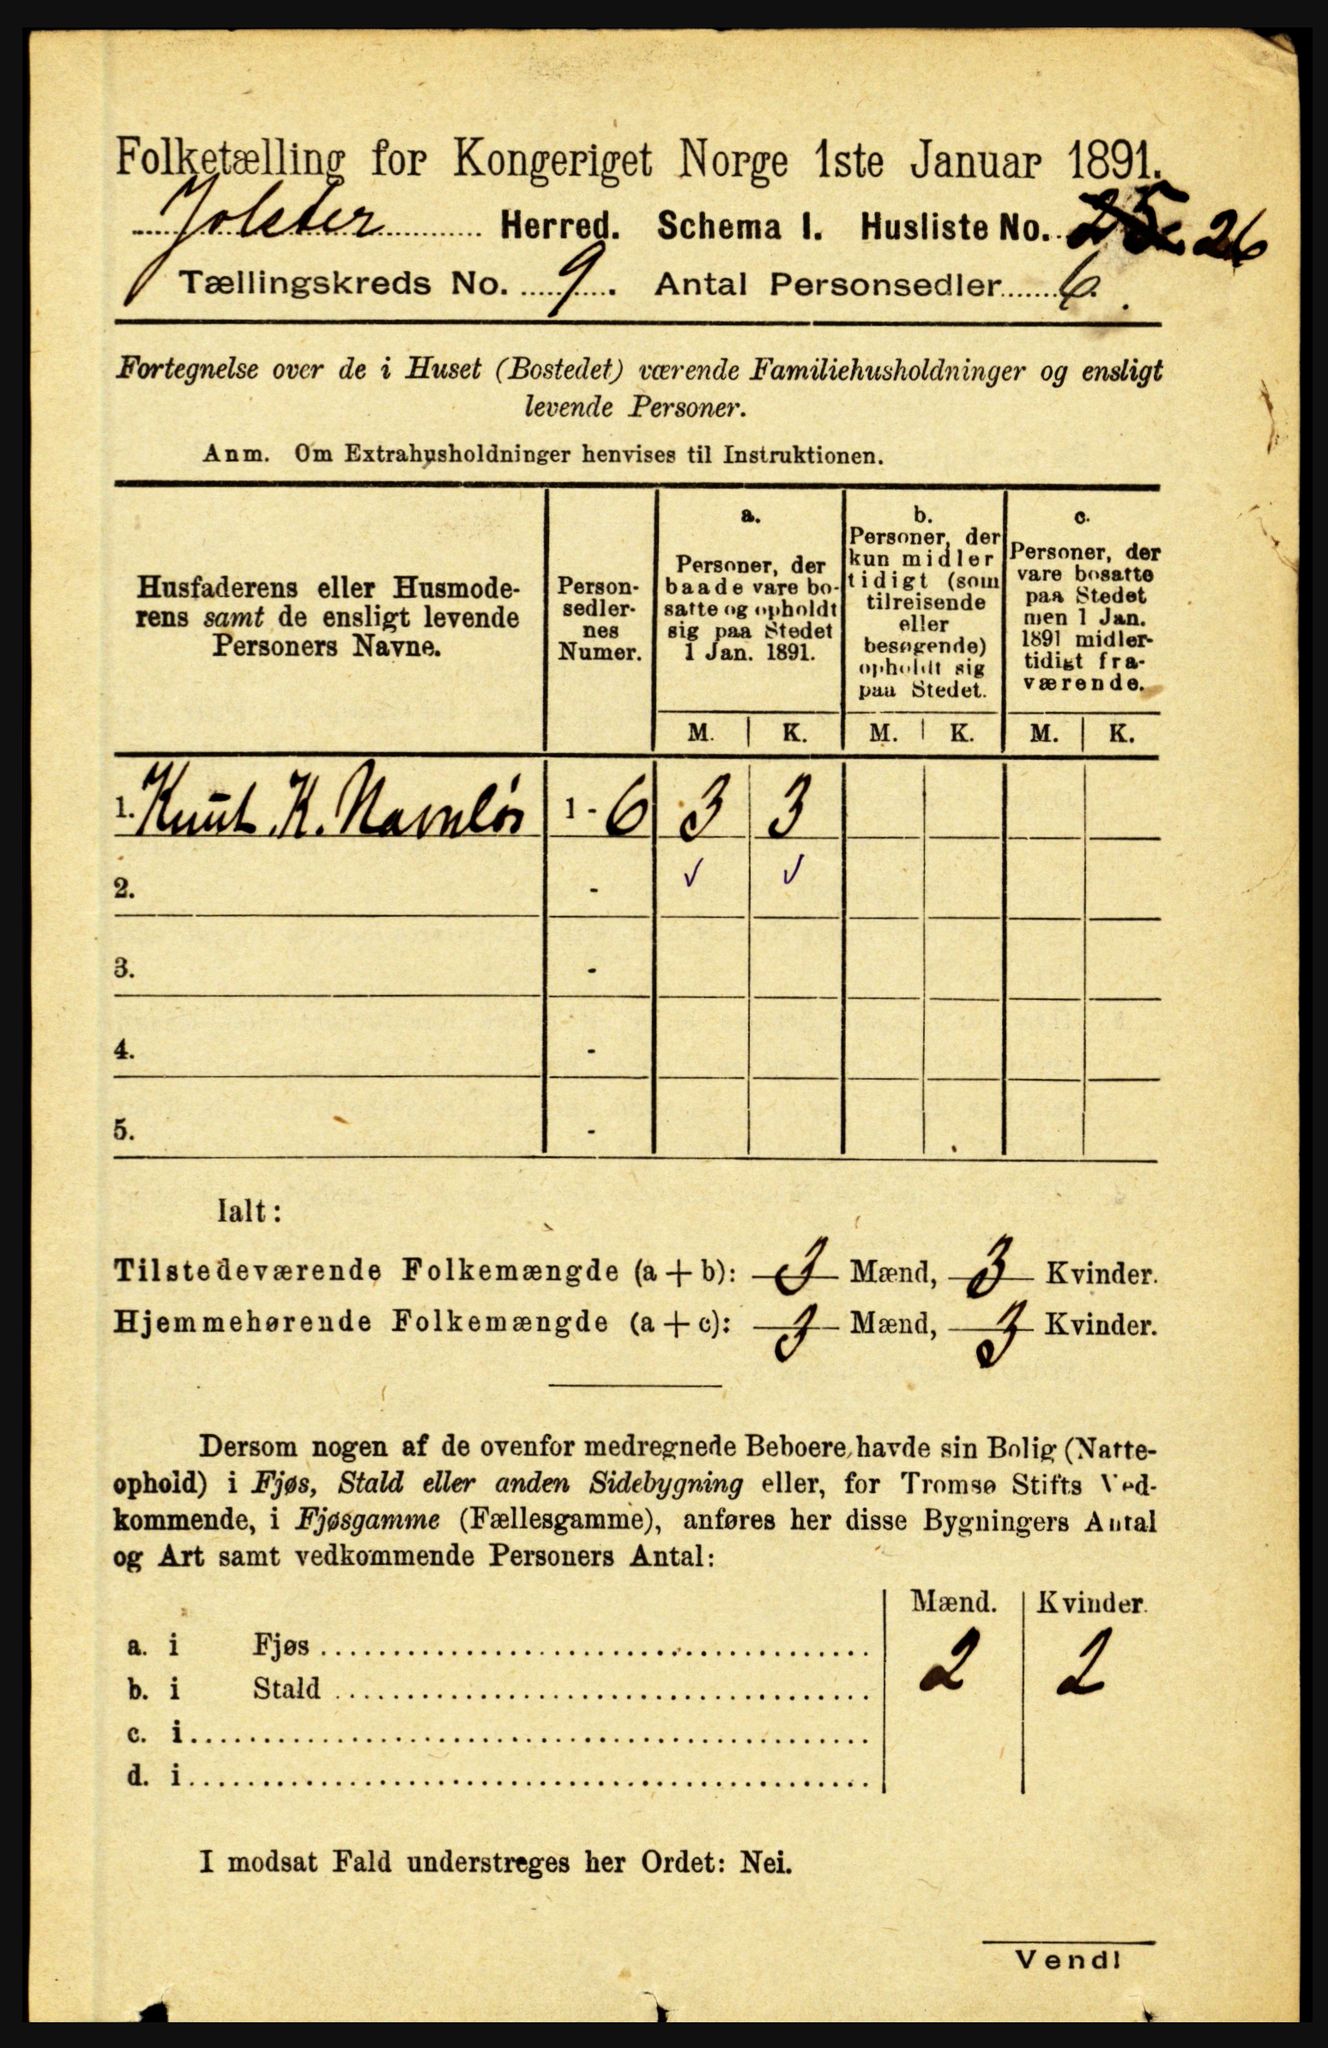 Folketælling for Kongeriget Norge 1ste Januar 1891.
Jolster Herred. Schema I. Husliste No. 25 26
Tællingskreds No. 9. Antal Personsedler 6.
Fortegnelse over de i Huset (Bostedet) værende Familiehusholdninger og ensligt
levende Personer.
Anm. Om Extrahusholdninger henvises til Instruktionen.
Husfaderens eller Husmode-
rens samt de ensligt levende
Personers Navne.
Person-
sedler-
nes
Numer.
a.
Personer, der
baade vare bo-
satte og opholdt
sig paa Stedet
1 Jan. 1891.
b.
Personer, der
kun midler
tidigt (som
tilreisende
eller
besøgende)
opholdt sig
paa Stedet.
c.
Personer, der
vare bosatte
paa Stedet
men 1 Jan.
1891 midler-
tidigt fra-
værende.
M. K. M. K. M. K.
1. Knut K. Navnløs 1 - 6 3 3
2. - ✓ ✓
3. -
4. -
5. -
Ialt:
Tilstedeværende Folkemængde (a + b): 3 Mænd, 3 Kvinder.
Hjemmehørende Folkemængde (a + c): 3 Mænd, 3 Kvinder.
Dersom nogen af de ovenfor medregnede Beboere havde sin Bolig (Natte-
ophold) i Fjøs, Stald eller anden Sidebygning eller, for Tromsø Stifts Ved-
kommende, i Fjøsgamme (Fællesgamme), anføres her disse Bygningers Antal
og Art samt vedkommende Personers Antal:
Mænd. Kvinder.
a. i Fjøs 2 2
b. i Stald
c. i
d. i
I modsat Fald understreges her Ordet: Nei.
Vend!